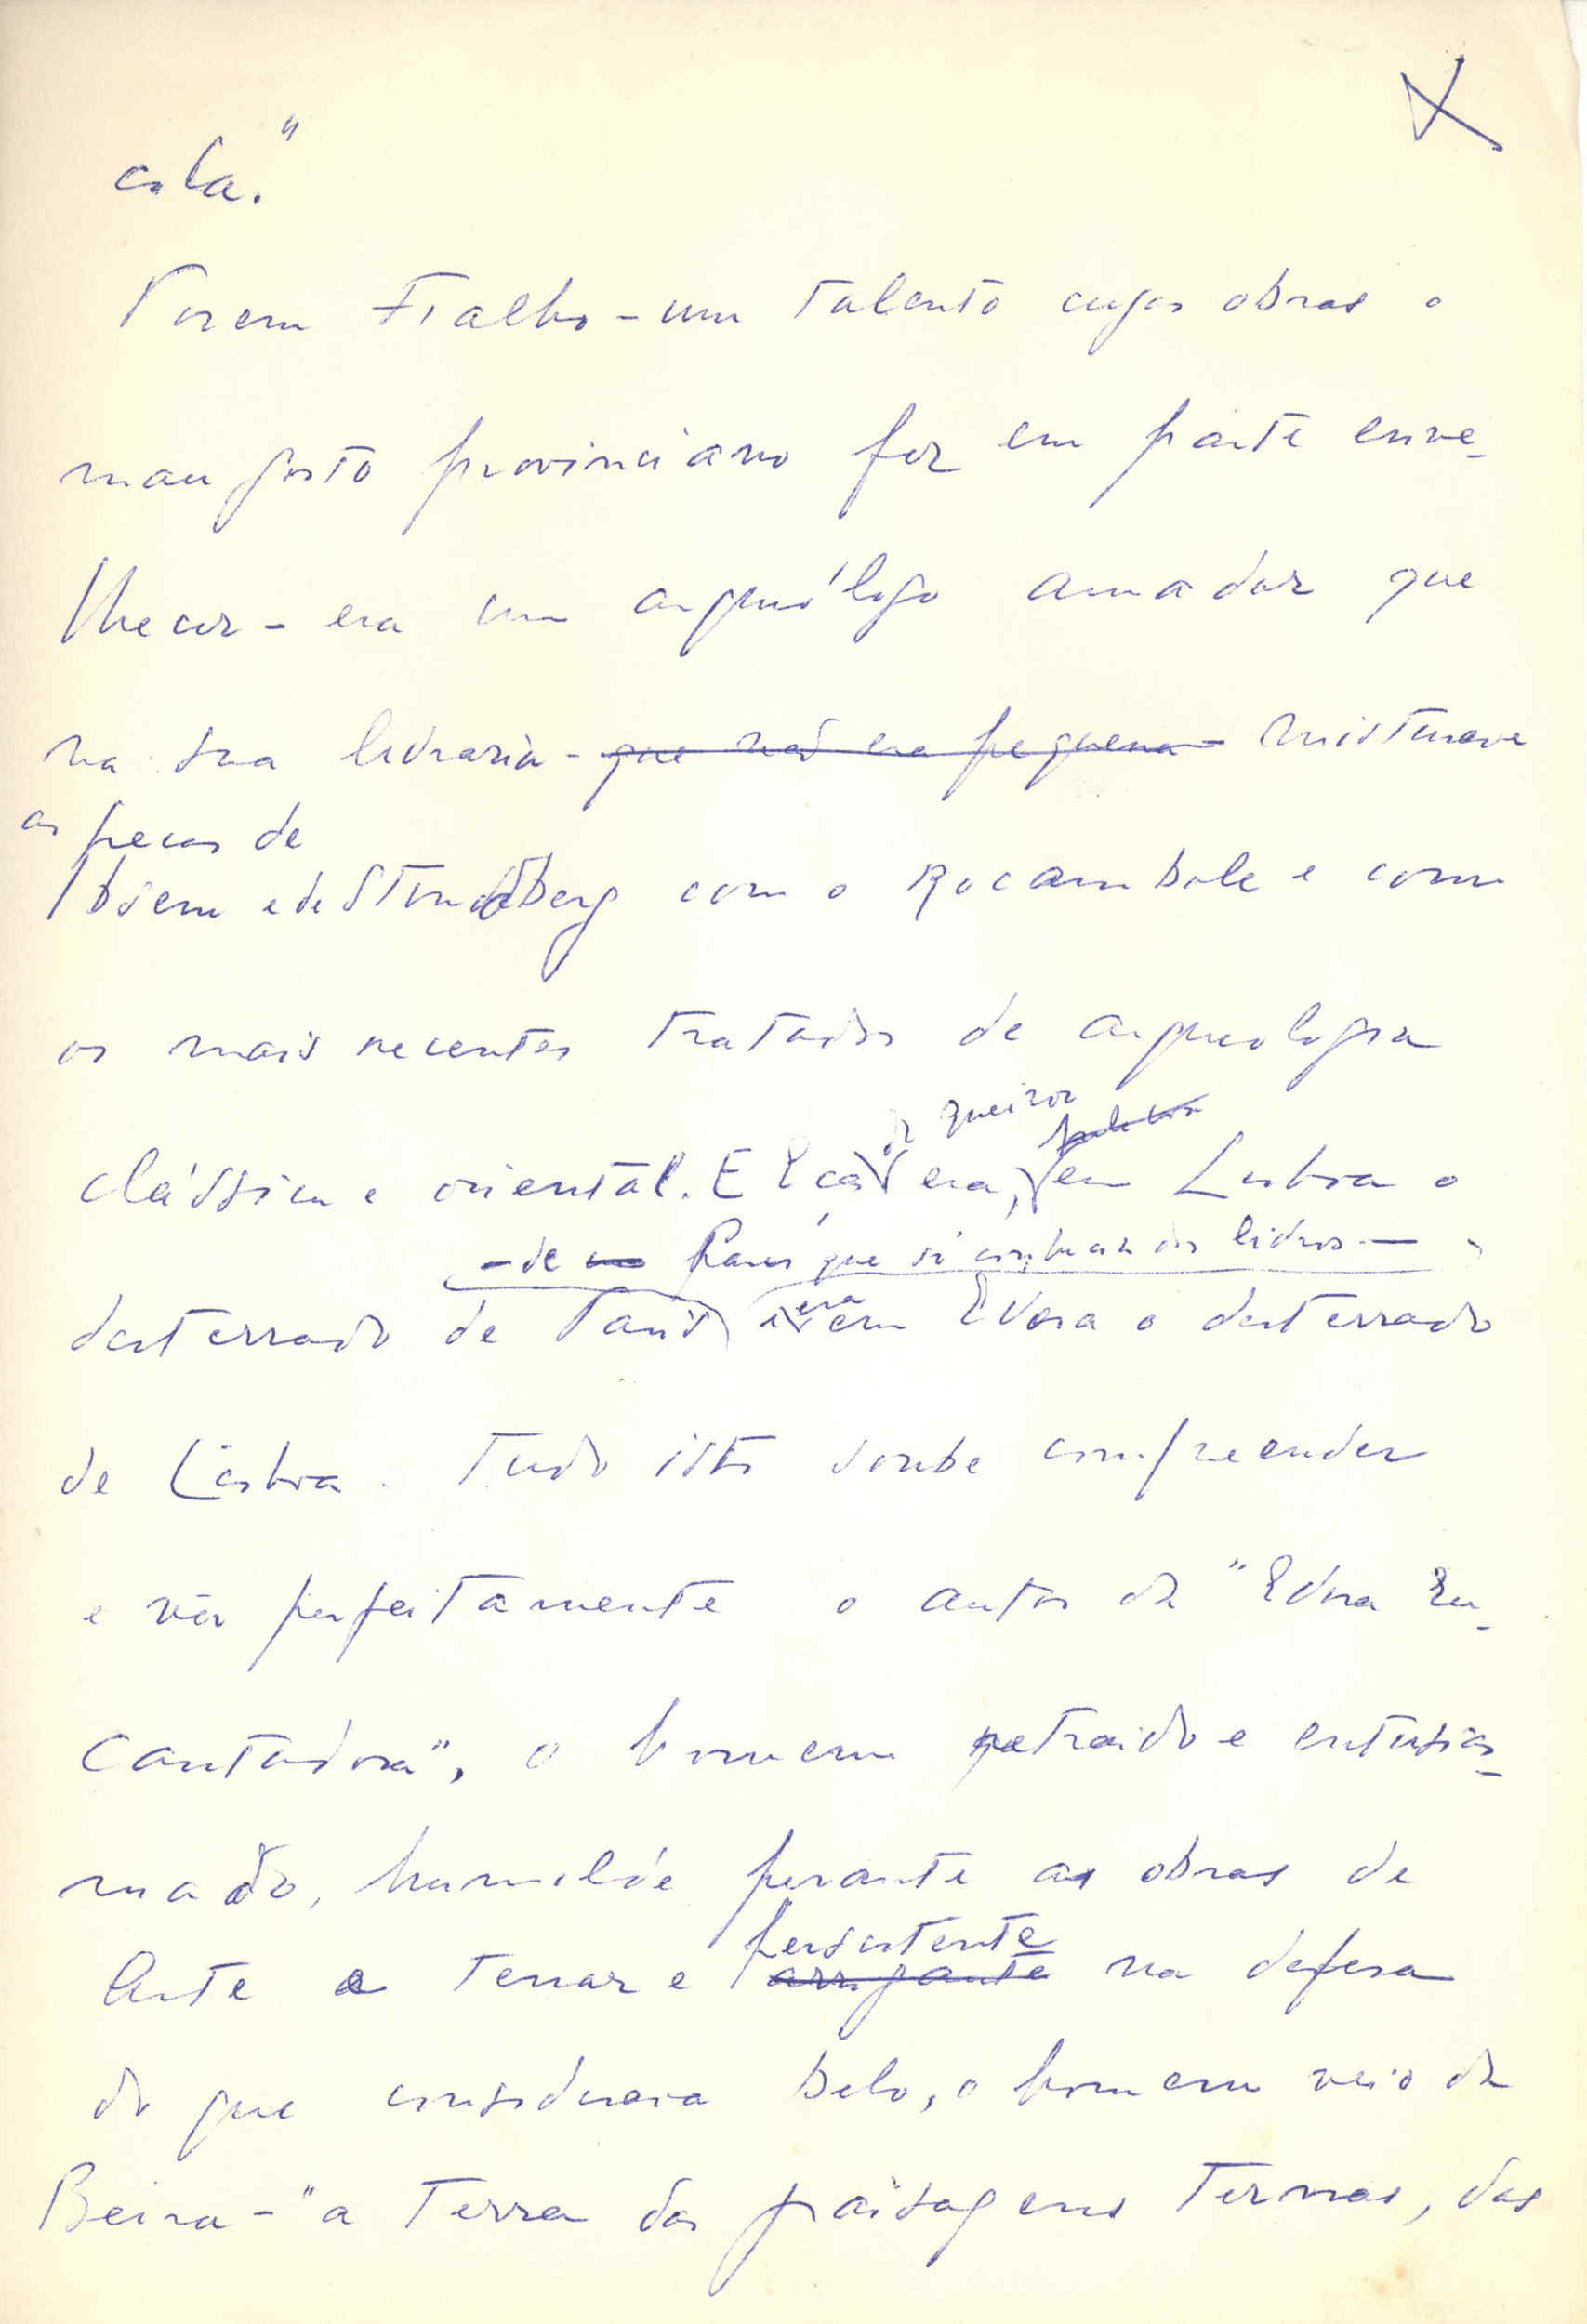 cola."
Porem Fialho - um talento cujas obras o
mau gosto provinciano fez em parte enve-
lhecer - era um arqueólogo amador que
na sua livraria - que não era pequena - misturava
as peças de
Ibsem e de Strindberg com o Rocambole e com
os mais recentes tratados de arqueologia
de Queiroz
clássica e oriental. E Eça era, em Lisboa o
- de Paris que só conhecia dos livros -
desterrado de Paris e era em Evora o desterrado
de Lisboa. Tudo isto soube compreender
e ver perfeitamente o autor da "Evora En-
cantadora", o homem retraido e entusias-
mado, humilde perante as obras de
Arte e tenaz e persistente
arrogante na defesa
do que considerava belo, o homem veio da
Beira - "a terra das paisagens ternas, das